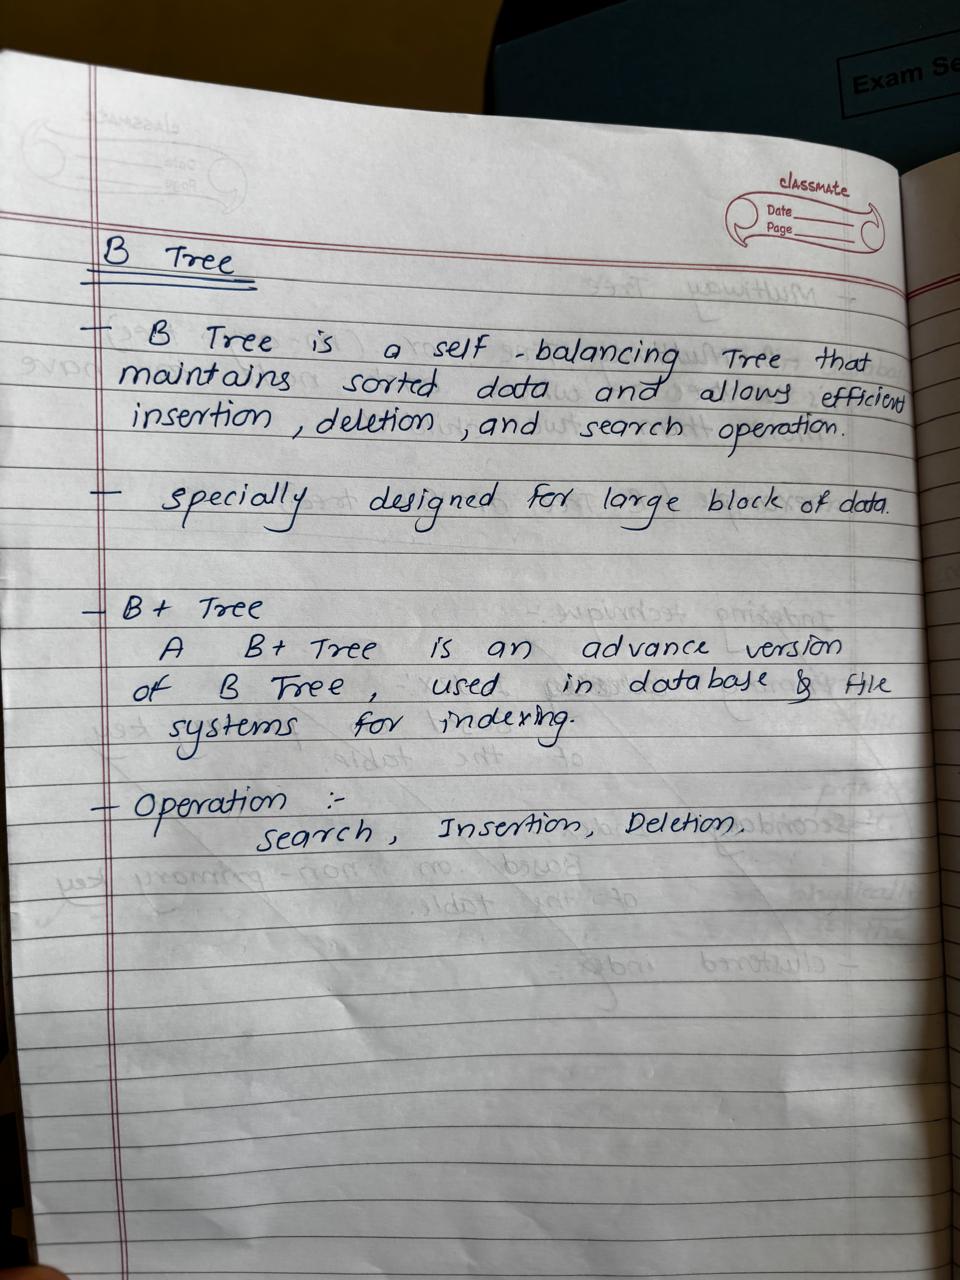 Exam Se
classmate
Date
Page
B Tree
- B Tree is a self-balancing Tree that
maintains sorted data and allows efficient
insertion, deletion, and search operation.
- specially designed for large block of data.
- B+ Tree
A B+ Tree is an advance version
of B Tree, used in database & file
systems for indexing.
- Operation :-
search, Insertion, Deletion.